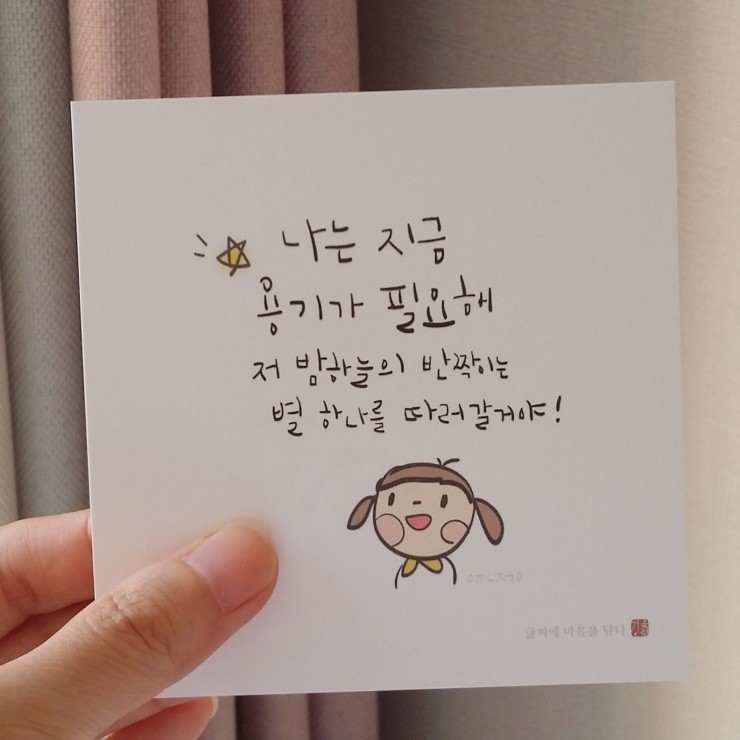 나는 지금
용기가 필요해
저 밤하늘의 반짝이는
별 하나를 따러갈거야!
글씨에 마음을 담다